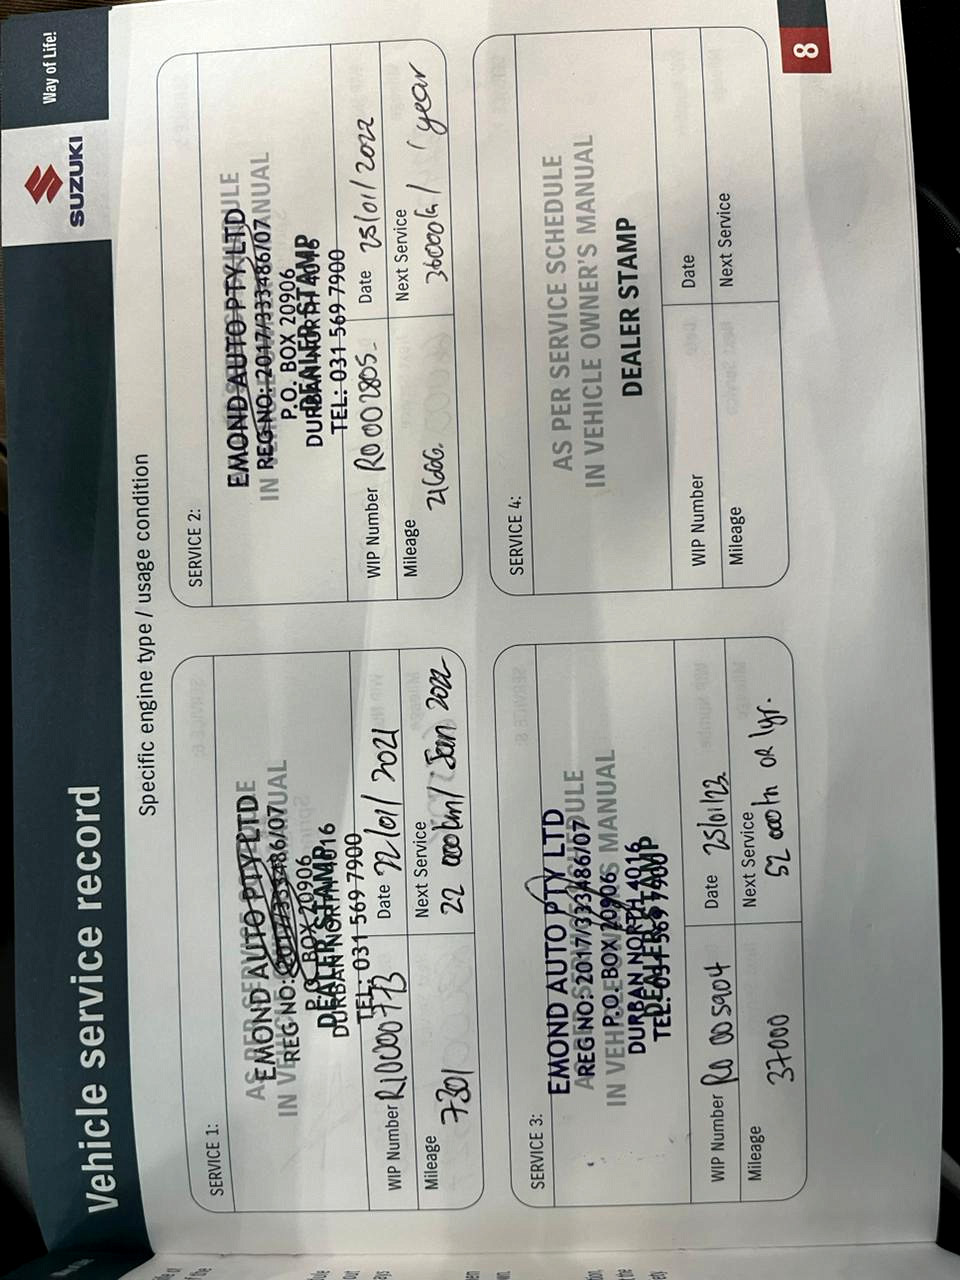 Vehicle service record
SUZUKI
Way of Life!
Specific engine type / usage condition
SERVICE 1:
AS PER SERVICE SCHEDULE
IN VEHICLE OWNER'S MANUAL
EMOND AUTO PTY LTD
REG NO: 2017/333486/07
P.O. BOX 20906
DEALER STAMP
DURBAN NORTH 4016
TEL: 031 569 7900
WIP Number
Date 22/01/2021
Mileage 7301
Next Service
22 000km/ Jan 2022
SERVICE 2:
EMOND AUTO PTY LTD
REG NO: 2017/333486/07
IN VEHICLE OWNER'S MANUAL
P.O. BOX 20906
DEALER STAMP
DURBAN NORTH 4016
TEL: 031 569 7900
WIP Number RO 002805-
Date 25/01/2022
Mileage
21666.
Next Service
36000k/ 1 year
SERVICE 3:
EMOND AUTO PTY LTD
AS PER SERVICE SCHEDULE
REG NO: 2017/333486/07
IN VEHICLE OWNER'S MANUAL
P.O. BOX 20906
DURBAN NORTH 4016
DEALER STAMP
TEL: 031 569 7900
WIP Number RO 005904
Date 25/01/23
Mileage
37000
Next Service
52 000km OR 1yr.
SERVICE 4:
AS PER SERVICE SCHEDULE
IN VEHICLE OWNER'S MANUAL
DEALER STAMP
WIP Number
Date
Mileage
Next Service
8